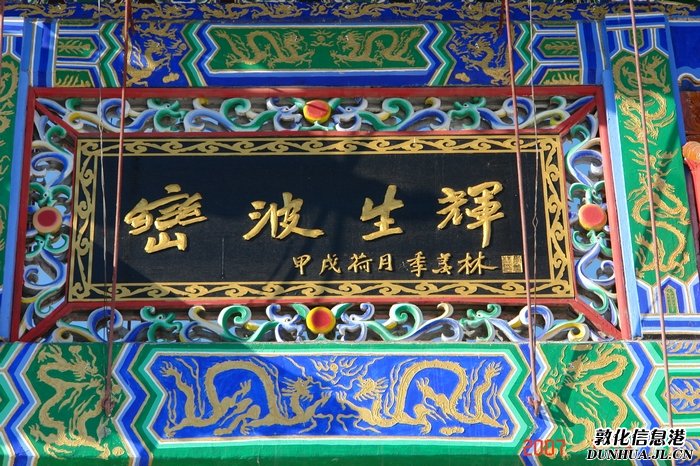 巒波生輝
甲戌荷月 季羡林
2007
敦化信息港
DUNHUA.JL.CN